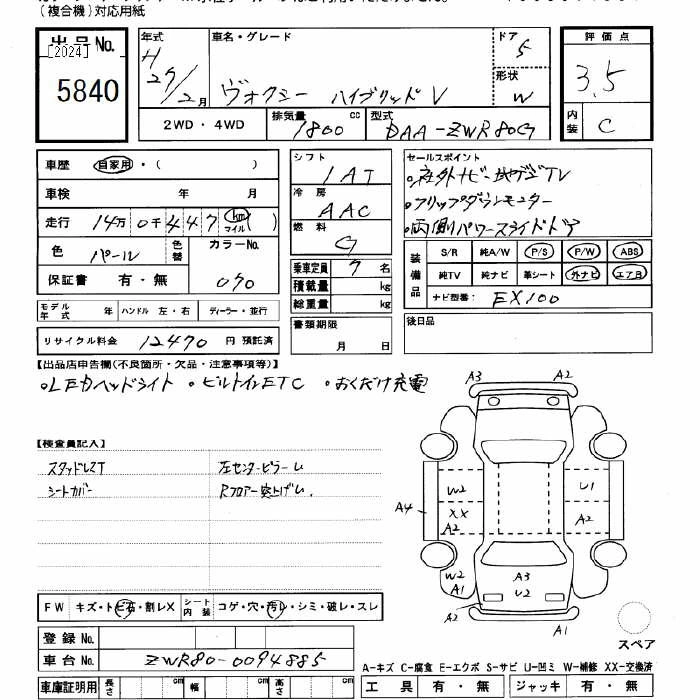 (複合機)対応用紙
出品No.
[2024]
5840
年式
H
27/2月
車名・グレード
ヴォクシー ハイブリッド V
ドア
5
形状
W
評価点
3.5
内装
C
2WD・4WD
排気量 1800 cc
型式 DAA-ZWR80G
車歴 自家用・( )
車検 年 月
走行 14万0千447 (km マイル) ( )
色 パール
色替
カラーNo.
070
保証書 有・無
シフト
IAT
冷房
AAC
燃料
G
乗車定員 7 名
積載量 kg
総重量 kg
書類期限
月 日
セールスポイント
・社外ナビ・地デジTV
・フリップダウンモニター
・両側パワースライドドア
装備品
S/R 純A/W P/S P/W ABS
純TV 純ナビ 革シート 外ナビ エアB
ナビ型番: EX100
後日品
モデル年式 年 ハンドル 左・右 ディーラー・並行
リサイクル料金 12470 円 預託済
【出品店申告欄(不良箇所・欠品・注意事項等)】
・LEDヘッドライト ・ビルトインETC ・おくだけ充電
【検査員記入】
スタッドレスT 左センターピラーU
シートカバー Rフロアー突上げU.
A3 A2
W2 U1
A4 XX A2 A2
W2 A1
A3 U2
A2
A1
スペア
FW キズ・トビ石・割レX
シート内装 コゲ・穴・汚レ・シミ・破レ・スレ
登録No.
車台No. ZWR80-0094885
車庫証明用 長さ cm 幅 cm 高さ cm
A-キズ C-腐食 E-エクボ S-サビ U-凹ミ W-補修 XX-交換済
工具 有・無 ジャッキ 有・無